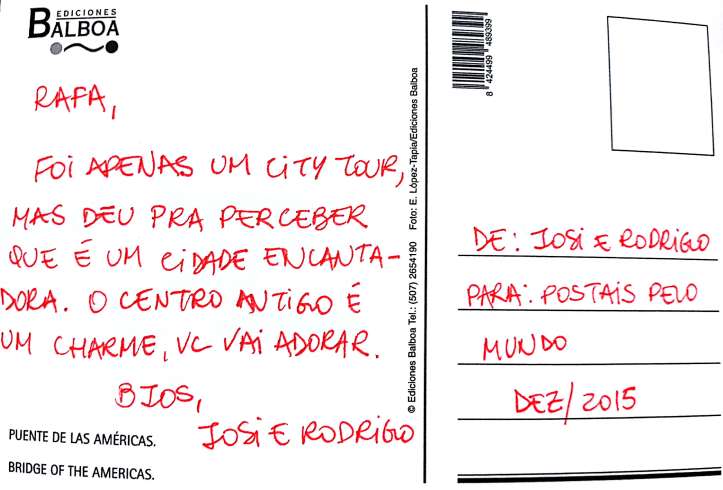 EDICIONES
BALBOA
RAFA,
FOI APENAS UM CITY TOUR,
MAS DEU PRA PERCEBER
QUE É UM CIDADE ENCANTA-
DORA. O CENTRO ANTIGO É
UM CHARME, VC VAI ADORAR.
BJOS,
JOSI E RODRIGO
PUENTE DE LAS AMÉRICAS.
BRIDGE OF THE AMERICAS.
© Ediciones Balboa Tel.: (507) 2654190 Foto: E. López-Tapia/Ediciones Balboa
8 424499 489399
DE: JOSI E RODRIGO
PARA: POSTAIS PELO
MUNDO
DEZ/2015